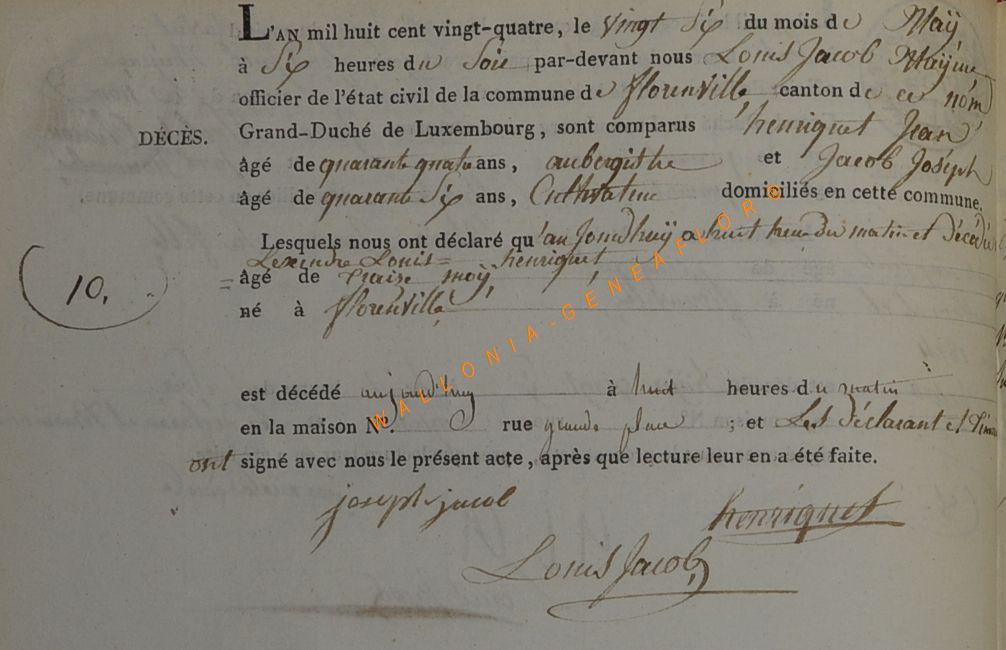 L'AN mil huit cent vingt-quatre, le vingt Six du mois de Maÿ
à Six heures du Soir par-devant nous Louis Jacob Mayeur
officier de l'état civil de la commune de florenville canton de ce nom
DÉCÈS. Grand-Duché de Luxembourg, sont comparus henriquet Jean
âgé de quarante quatre ans, aubergiste et Jacob Joseph
âgé de quarante Six ans, Cultivateur domiciliés en cette commune.
Lesquels nous ont déclaré qu'aujourdhuÿ a huit heure du matin et décédé
Lexendre Louis henriquet
10, = âgé de traize moÿ,
né à florenville
est décédé aujourd'huy à huit heures du matin
en la maison N°. rue grande place ; et Les déclarant et
ont signé avec nous le présent acte, après que lecture leur en a été faite.
joseph jacob henriquet
Louis Jacob
WALLONIA-GENEAFLORE